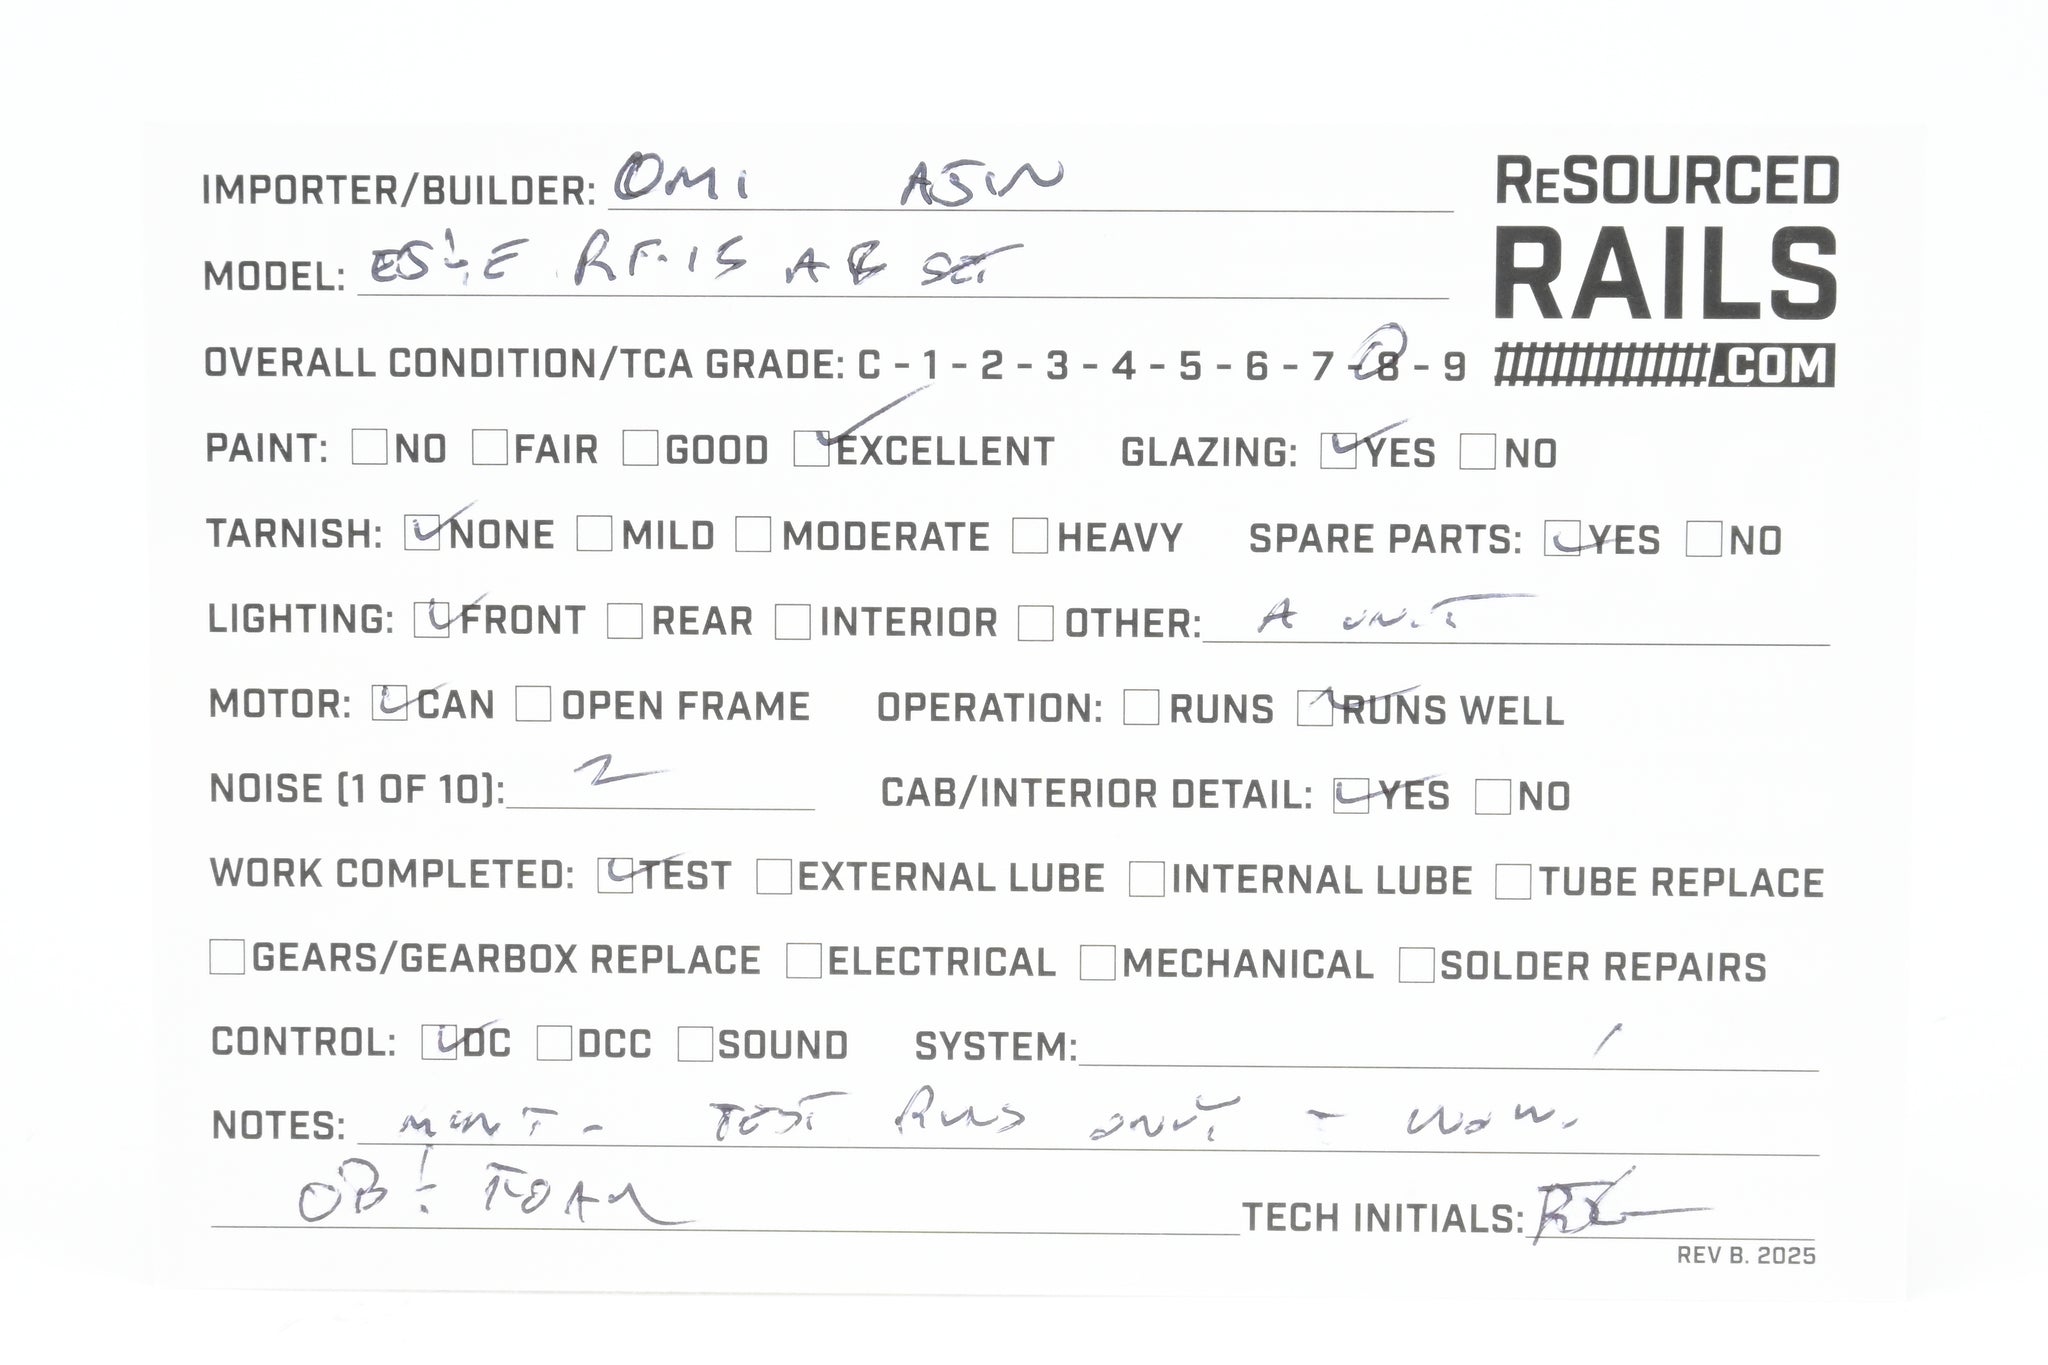 IMPORTER/BUILDER: OMI AJIN
RESOURCED
RAILS
.COM
MODEL: ES&E RF-15 AB SET
OVERALL CONDITION/TCA GRADE: C - 1 - 2 - 3 - 4 - 5 - 6 - 7 - 8 - 9
PAINT: NO FAIR GOOD EXCELLENT GLAZING: YES NO
TARNISH: NONE MILD MODERATE HEAVY SPARE PARTS: YES NO
LIGHTING: FRONT REAR INTERIOR OTHER: A UNIT
MOTOR: CAN OPEN FRAME OPERATION: RUNS RUNS WELL
NOISE (1 OF 10): 2 CAB/INTERIOR DETAIL: YES NO
WORK COMPLETED: TEST EXTERNAL LUBE INTERNAL LUBE TUBE REPLACE
GEARS/GEARBOX REPLACE ELECTRICAL MECHANICAL SOLDER REPAIRS
CONTROL: DC DCC SOUND SYSTEM:
NOTES: MINT - TEST RUNS ONLY - WOW!
OB & FOAM TECH INITIALS:
REV B. 2025